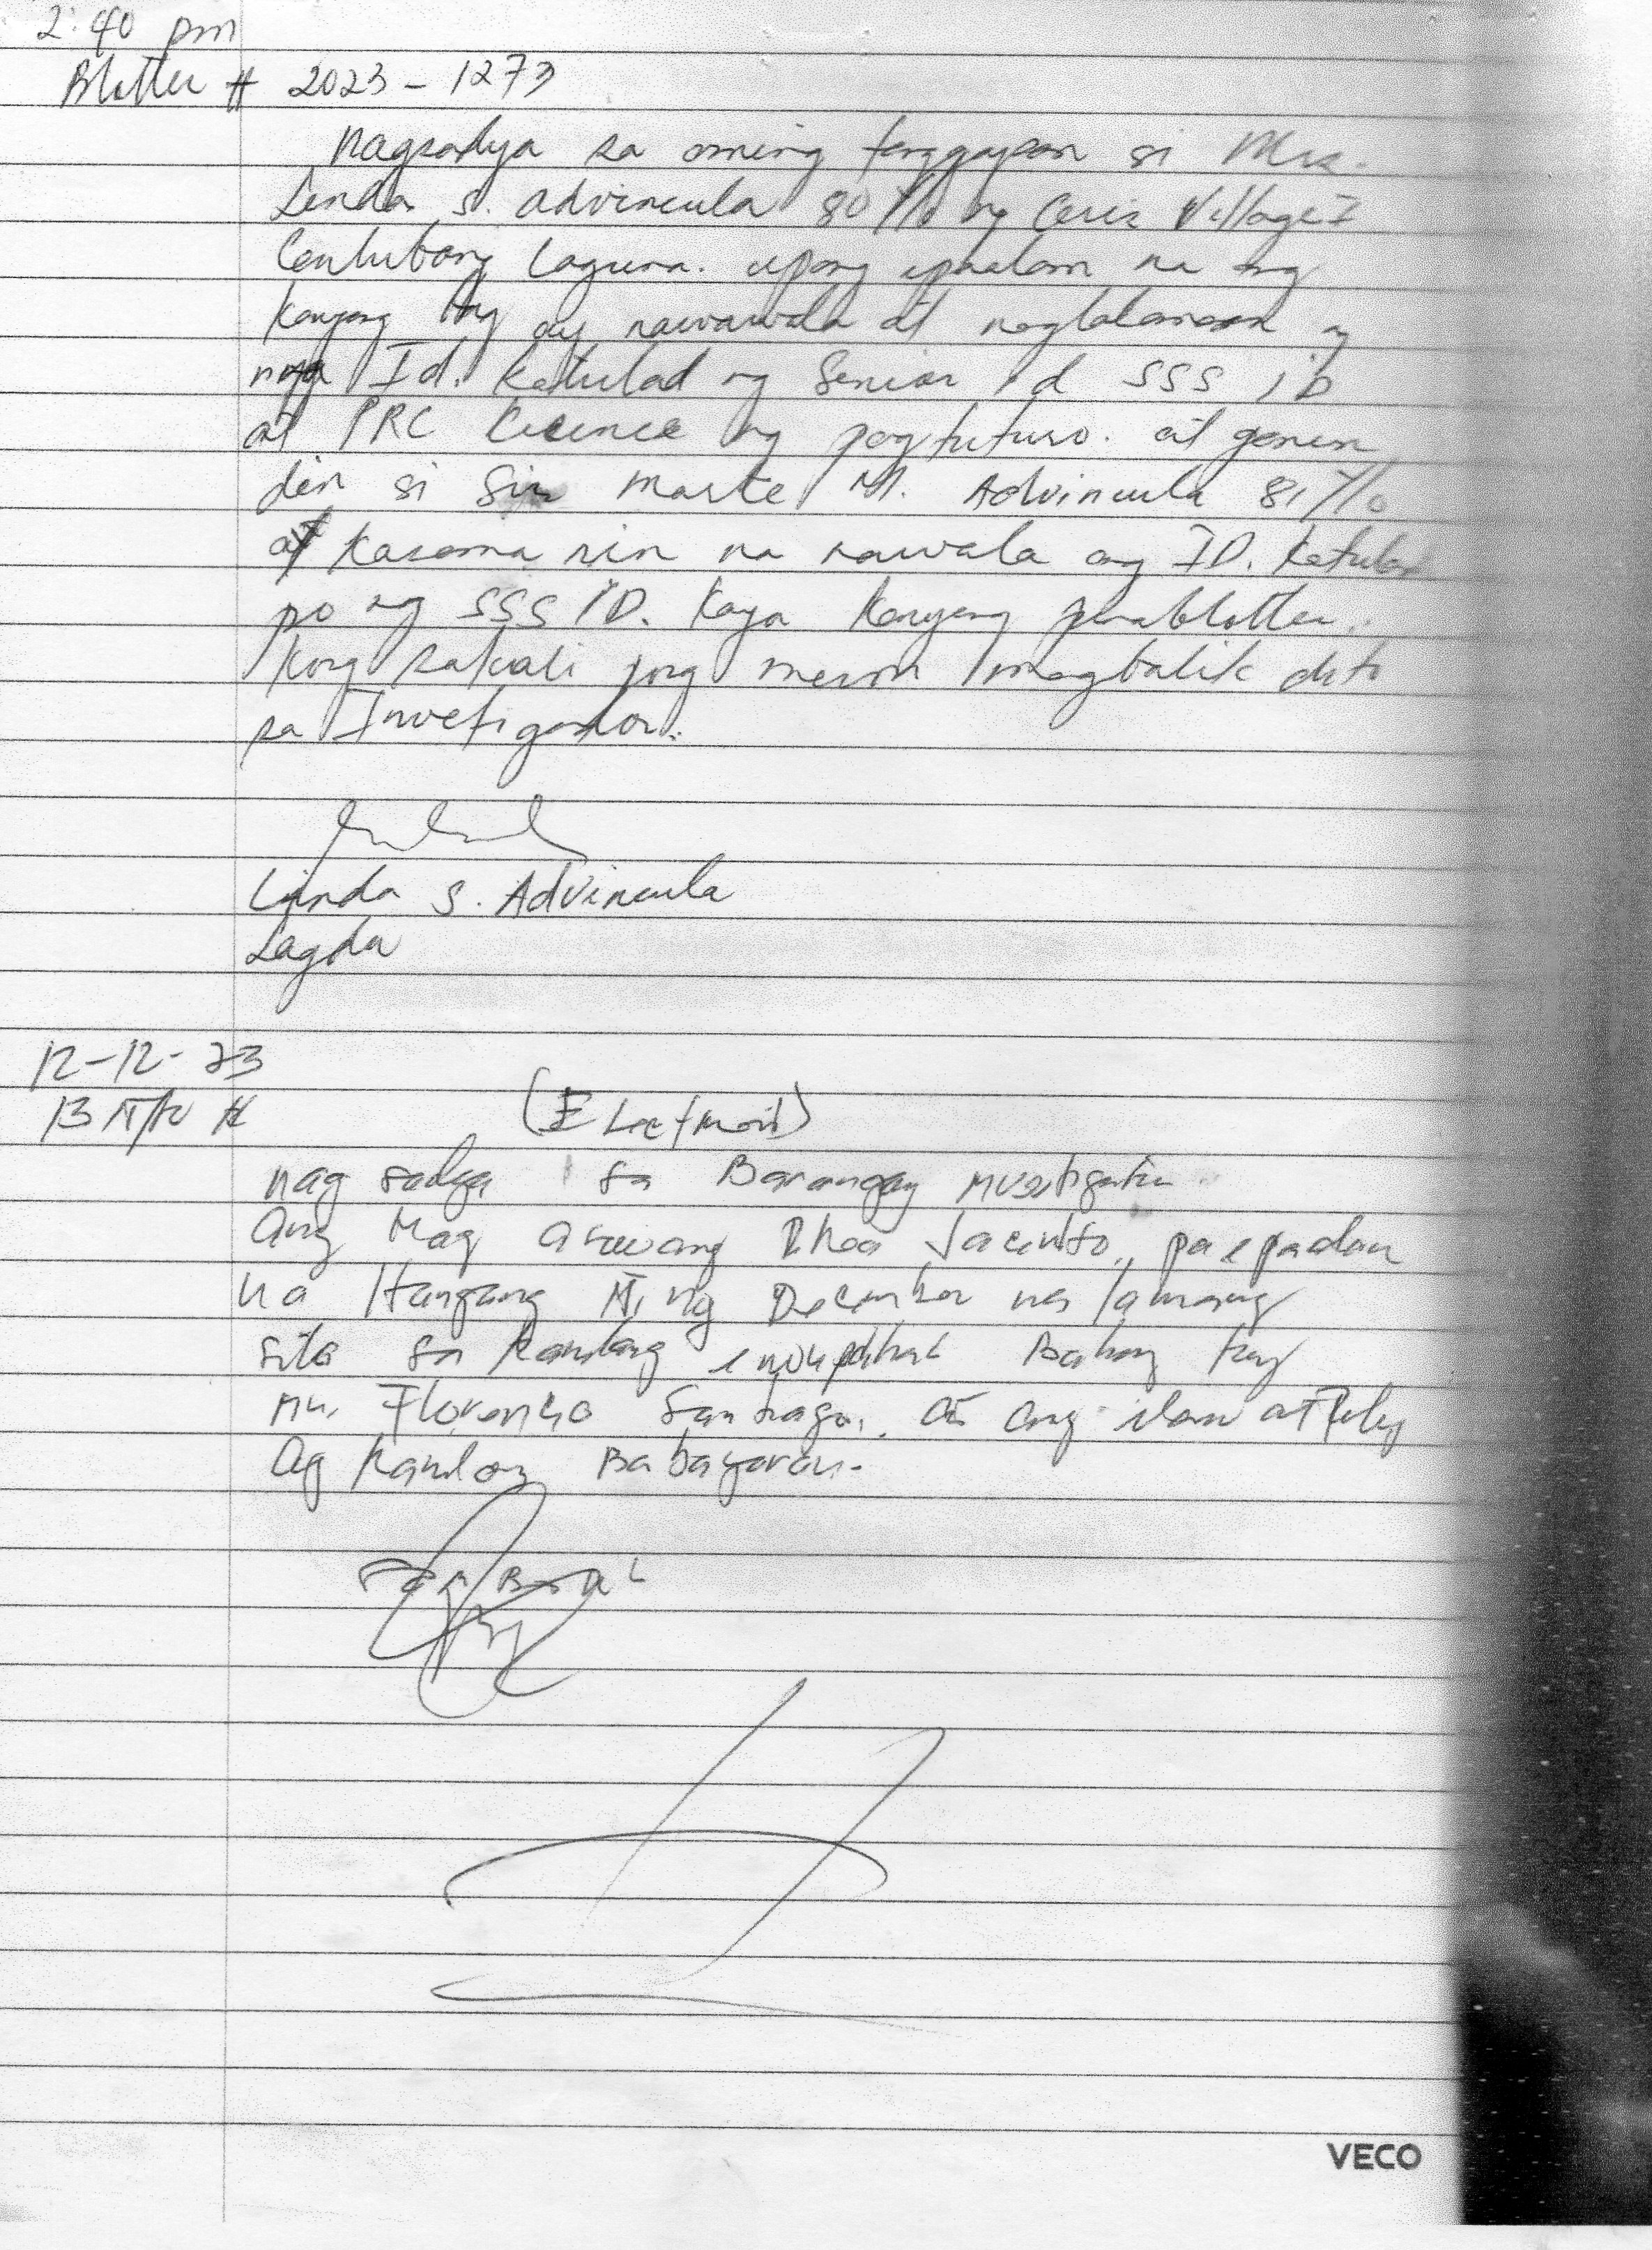 2:40 pm
Blotter # 2023-1273
Nagsadya sa aming tanggapan si Mrs.
Linda S. Advincula 80 Y/o ng Ceris Village I
Canlubang Laguna. upang ipaalam na ang
kanyang bag ay nawawala at naglalaman ng
mga Id. katulad ng Senior id SSS iD
at PRC Licence ng pagtuturo. at ganun
din si Sir Marte M. Advincula 81 Y/o
at kasama rin na nawala ang ID. katulad
po ng SSS iD. Kaya kanyang pinablotter.
kung sakali pong meron magbalik dito
sa
Linda S. Advincula
Lagda
12-12-23
nag sadya sa Barangay
Ang Mag asawang Jacinto,
na Hangang ng December na lamang
sila sa kanilang Bahay kay
Mr. Florencio Santiago, At ang ilaw at
Ay kanilang Babayaran.
VECO